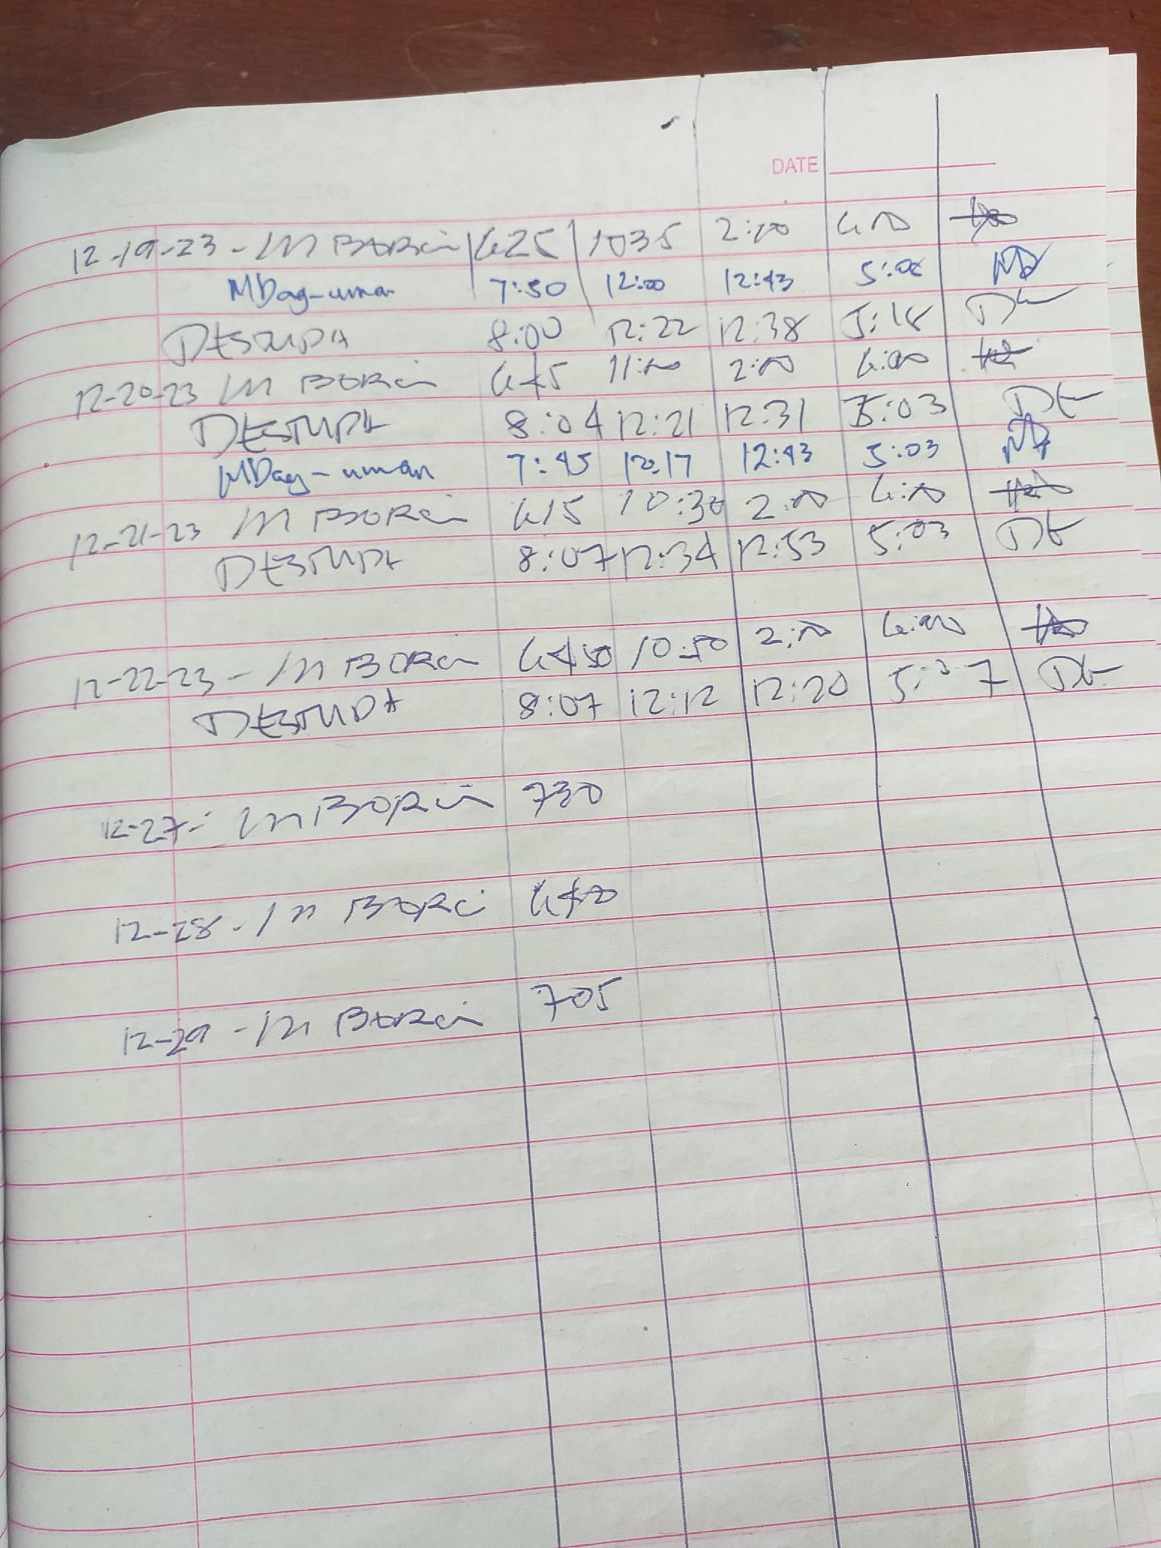 DATE
12-19-23 - M BORCI 625 1035 2:00 4:00
MDag-uman 7:50 12:00 12:43 5:06
DESTUPA 8:00 12:22 12:38 5:18
12-20-23 M BORCI 645 11:00 2:00 4:00
DESTUPA 8:04 12:21 12:31 5:03
MDag-uman 7:45 12:17 12:43 5:03
12-21-23 M BORCI 615 10:30 2:00 4:00
DESTUPA 8:07 12:34 12:53 5:03
12-22-23 - M BORCI 10:50 2:00 4:00
DESTUPA 8:07 12:12 12:20
12-27- M BORCI 730
12-28 - M BORCI
12-29 - M BORCI 705